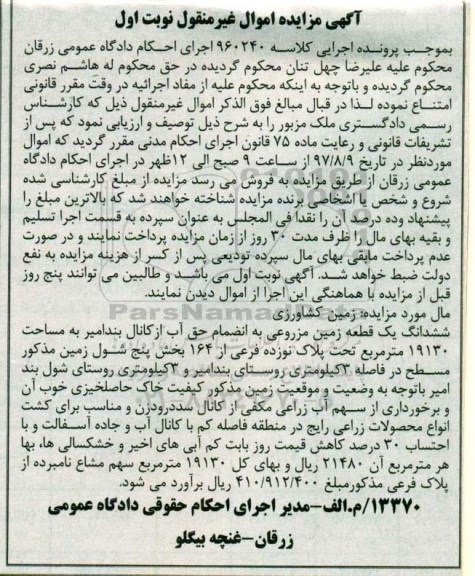 آگهی مزایده اموال غیرمنقول نوبت اول
بموجب پرونده اجرایی کلاسه ۹۶۰۲۴۰ اجرای احکام دادگاه عمومی زرقان
محکوم علیه علیرضا چهل تنان محکوم گردیده در حق محکوم له هاشم نصری
محکوم گردیده و باتوجه به اینکه محکوم علیه از مفاد اجرائیه در وقت مقرر قانونی
امتناع نموده لذا در قبال مبالغ فوق الذکر اموال غیرمنقول ذیل که کارشناس
رسمی دادگستری ملک مزبور را به شرح ذیل توصیف و ارزیابی نمود که پس از
تشریفات قانونی و رعایت ماده ۷۵ قانون اجرای احکام مدنی مقرر گردید که اموال
موردنظر در تاریخ ۹۷/۸/۹ از ساعت ۹ صبح الی ۱۲ظهر در اجرای احکام دادگاه
عمومی زرقان از طریق مزایده به فروش می رسد مزایده از مبلغ کارشناسی شده
شروع و شخص یا اشخاصی برنده مزایده شناخته خواهند شد که بالاترین مبلغ را
پیشنهاد وده درصد آن را نقدا فی المجلس به عنوان سپرده به قسمت اجرا تسلیم
و بقیه بهای مال را ظرف مدت ۳۰ روز از زمان مزایده پرداخت نمایند و در صورت
عدم پرداخت مابقی بهای مال سپرده تودیعی پس از کسر از هزینه مزایده به نفع
دولت ضبط خواهد شد. آگهی نوبت اول می باشد و طالبین می توانند پنج روز
قبل از مزایده با هماهنگی این اجرا از اموال دیدن نمایند.
مال مورد مزایده: زمین کشاورزی
ششدانگ یک قطعه زمین مزروعی به انضمام حق آب ازکانال بندامیر به مساحت
۱۹۱۳۰ مترمربع تحت پلاک نوزده فرعی از ۱۶۴ بخش پنج شول زمین مذکور
مسطح در فاصله ۳کیلومتری روستای بندامیر و ۲کیلومتری روستای شول بند
امیر باتوجه به وضعیت و موقعیت زمین مذکور کیفیت خاک حاصلخیزی خوب آن
و برخورداری از سهم آب زراعی مکفی از کانال سددرودزن و مناسب برای کشت
انواع محصولات زراعی رایج در منطقه فاصله کم با کانال آب و جاده آسفالت و با
احتساب ۳۰ درصد کاهش قیمت روز بابت کم آبی های اخیر و خشکسالی ها، بها
هر مترمربع آن ۲۱۴۸۰ ریال و بهای کل ۱۹۱۳۰ مترمربع سهم مشاع نامبرده از
پلاک فرعی مذکورمبلغ ۴۱۰/۹۱۲/۴۰۰ ریال برآورد می شود.
۱۳۳۷۰/م.الف-مدیر اجرای احکام حقوقی دادگاه عمومی
زرقان-غنچه بیگلو